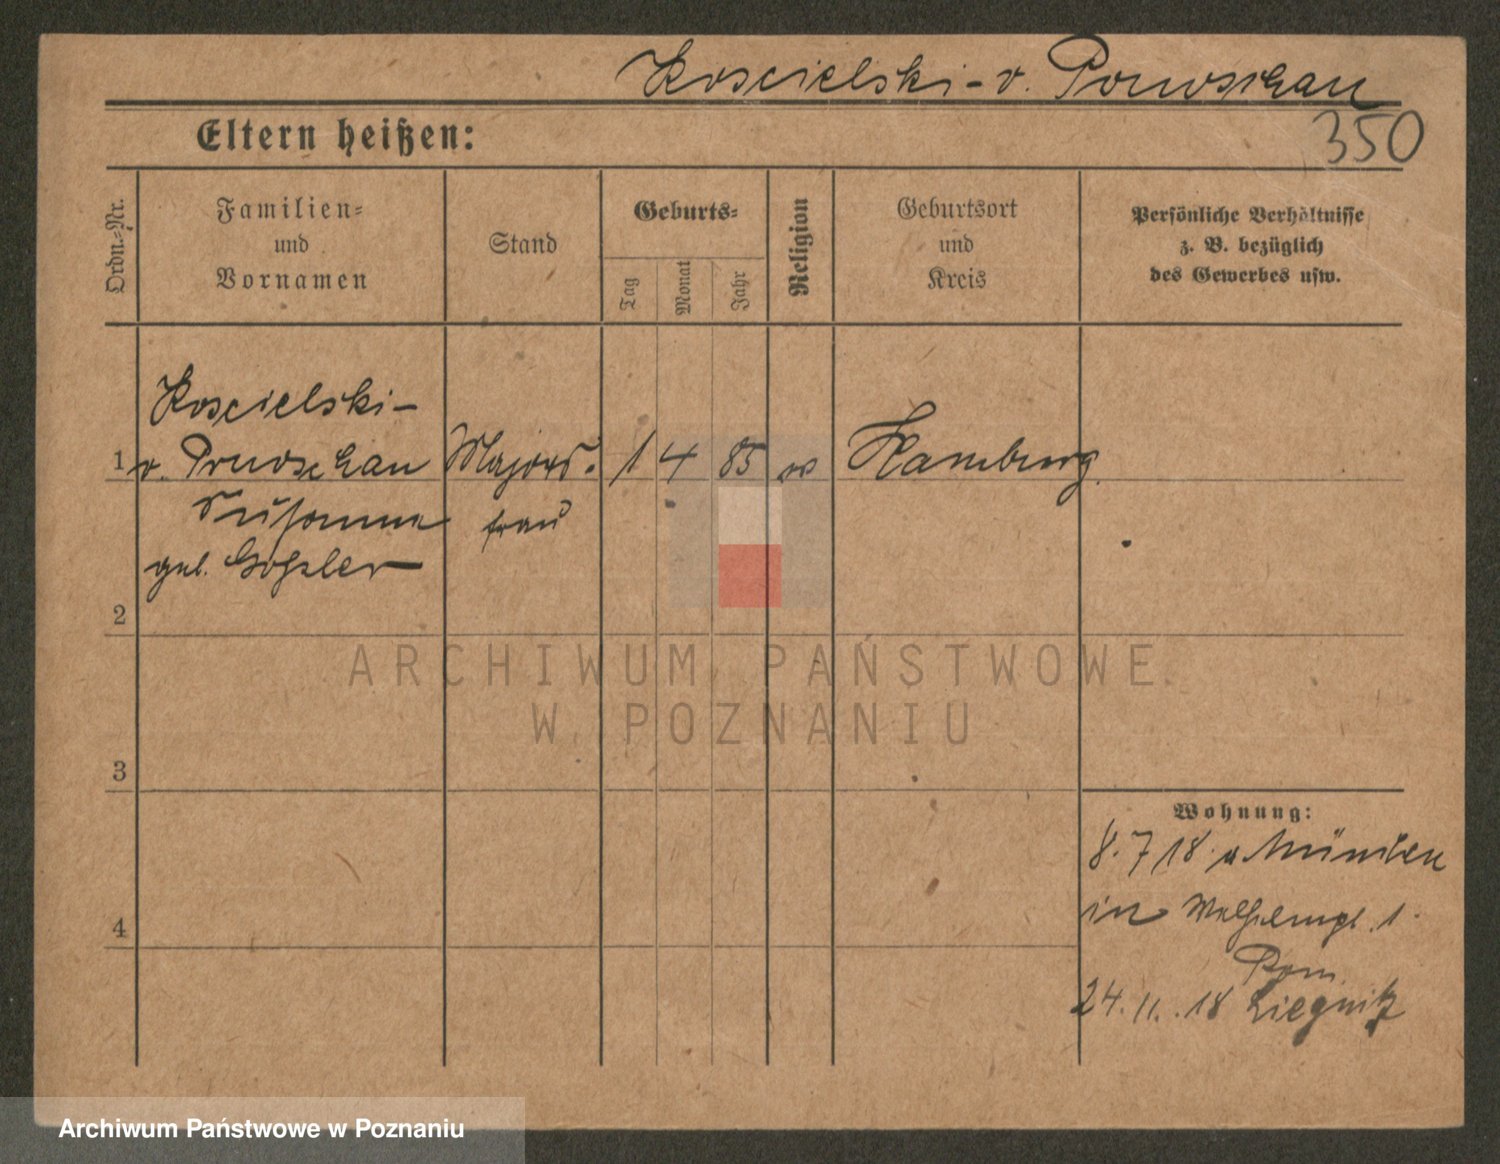 Koscielski - v. Ponoschau
350
Eltern heißen:
Ordn.-Nr.
Familien-
und
Vornamen
Stand
Geburts-
Tag
Monat
Jahr
Religion
Geburtsort
und
Kreis
Persönliche Verhältnisse
z. B. bezüglich
des Gewerbes usw.
Koscielski -
1 v. Ponoschau Majors- 1 4 85 Hamburg
Susanna frau
geb. Goßler
2
3
4
Wohnung:
8. 7 18. München
in Wilhelmpl. 1.
Pom
24. 11. 18 Liegnitz
ARCHIWUM PAŃSTWOWE
W POZNANIU
Archiwum Państwowe w Poznaniu